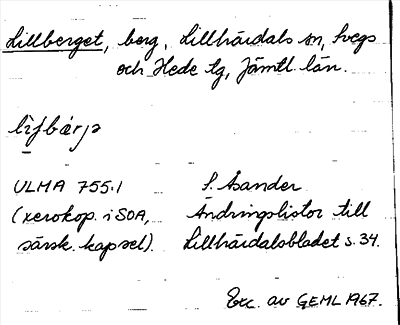 Lillberget, berg, Lillhärdals sn, Svegs
och Hede tg, Jämtl. län.
lìfbærjə
ULMA 755:1 S. Åsander
(xerokop. i SOA, Ändringslistor till
särsk. kapsel). Lillhärdalsbladet s. 34.
Exc. av GEML 1967.